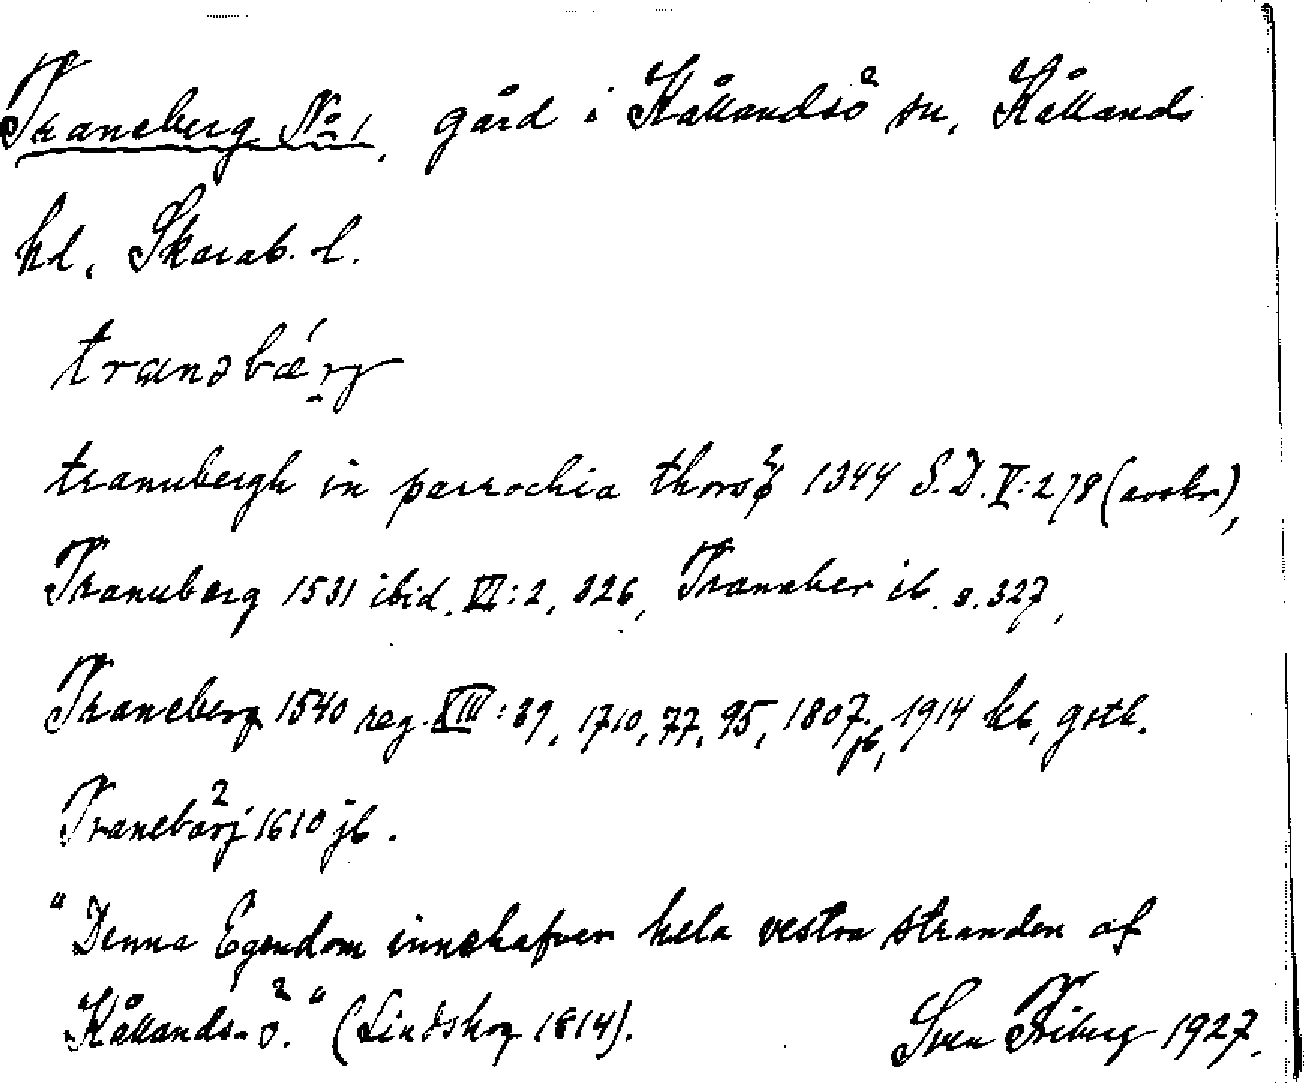 Traneberg No 1, gård i Kållandsö sn, Kållands
hd, Skarab. l.
tranəbǽrg
tranubergh in parrochia thorsø 1344 S.D. V: 278 (avskr),
Tranuberg 1531 ibid. VI: 2, 326, Traneber ib. s. 327,
Traneberg 1540 reg. XIII: 89, 1710, 77, 95, 1807 jb, 1914 kb, gstb.
Tranebärj 1610 jb.
"Denna Egendom innehafver hela vestra stranden af
Kållands-ö." (Lindskog 1814). Sven Friberg 1927.